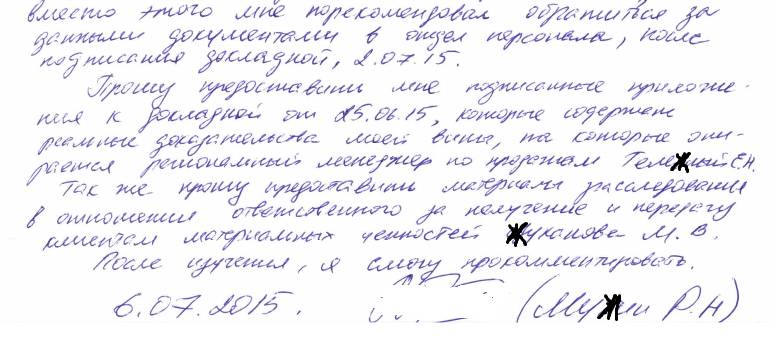 вместо этого мне порекомендовал обратиться за
данными документами в отдел персонала, после
подписания докладной, 2.07.15.
Прошу предоставить мне подписанные приложе-
ния к докладной от 25.06.15, которые содержат
реальные доказательства моей вины, на которые опи-
рается региональный менеджер по продажам Теле ный Е.Н.
Так же прошу предоставить материалы расследования
в отношении ответственного за получение и передачу
клиентам материальных ценностей уканова М.В.
После изучения, я смогу прокомментировать.
6.07.2015. (Му ин Р.Н)